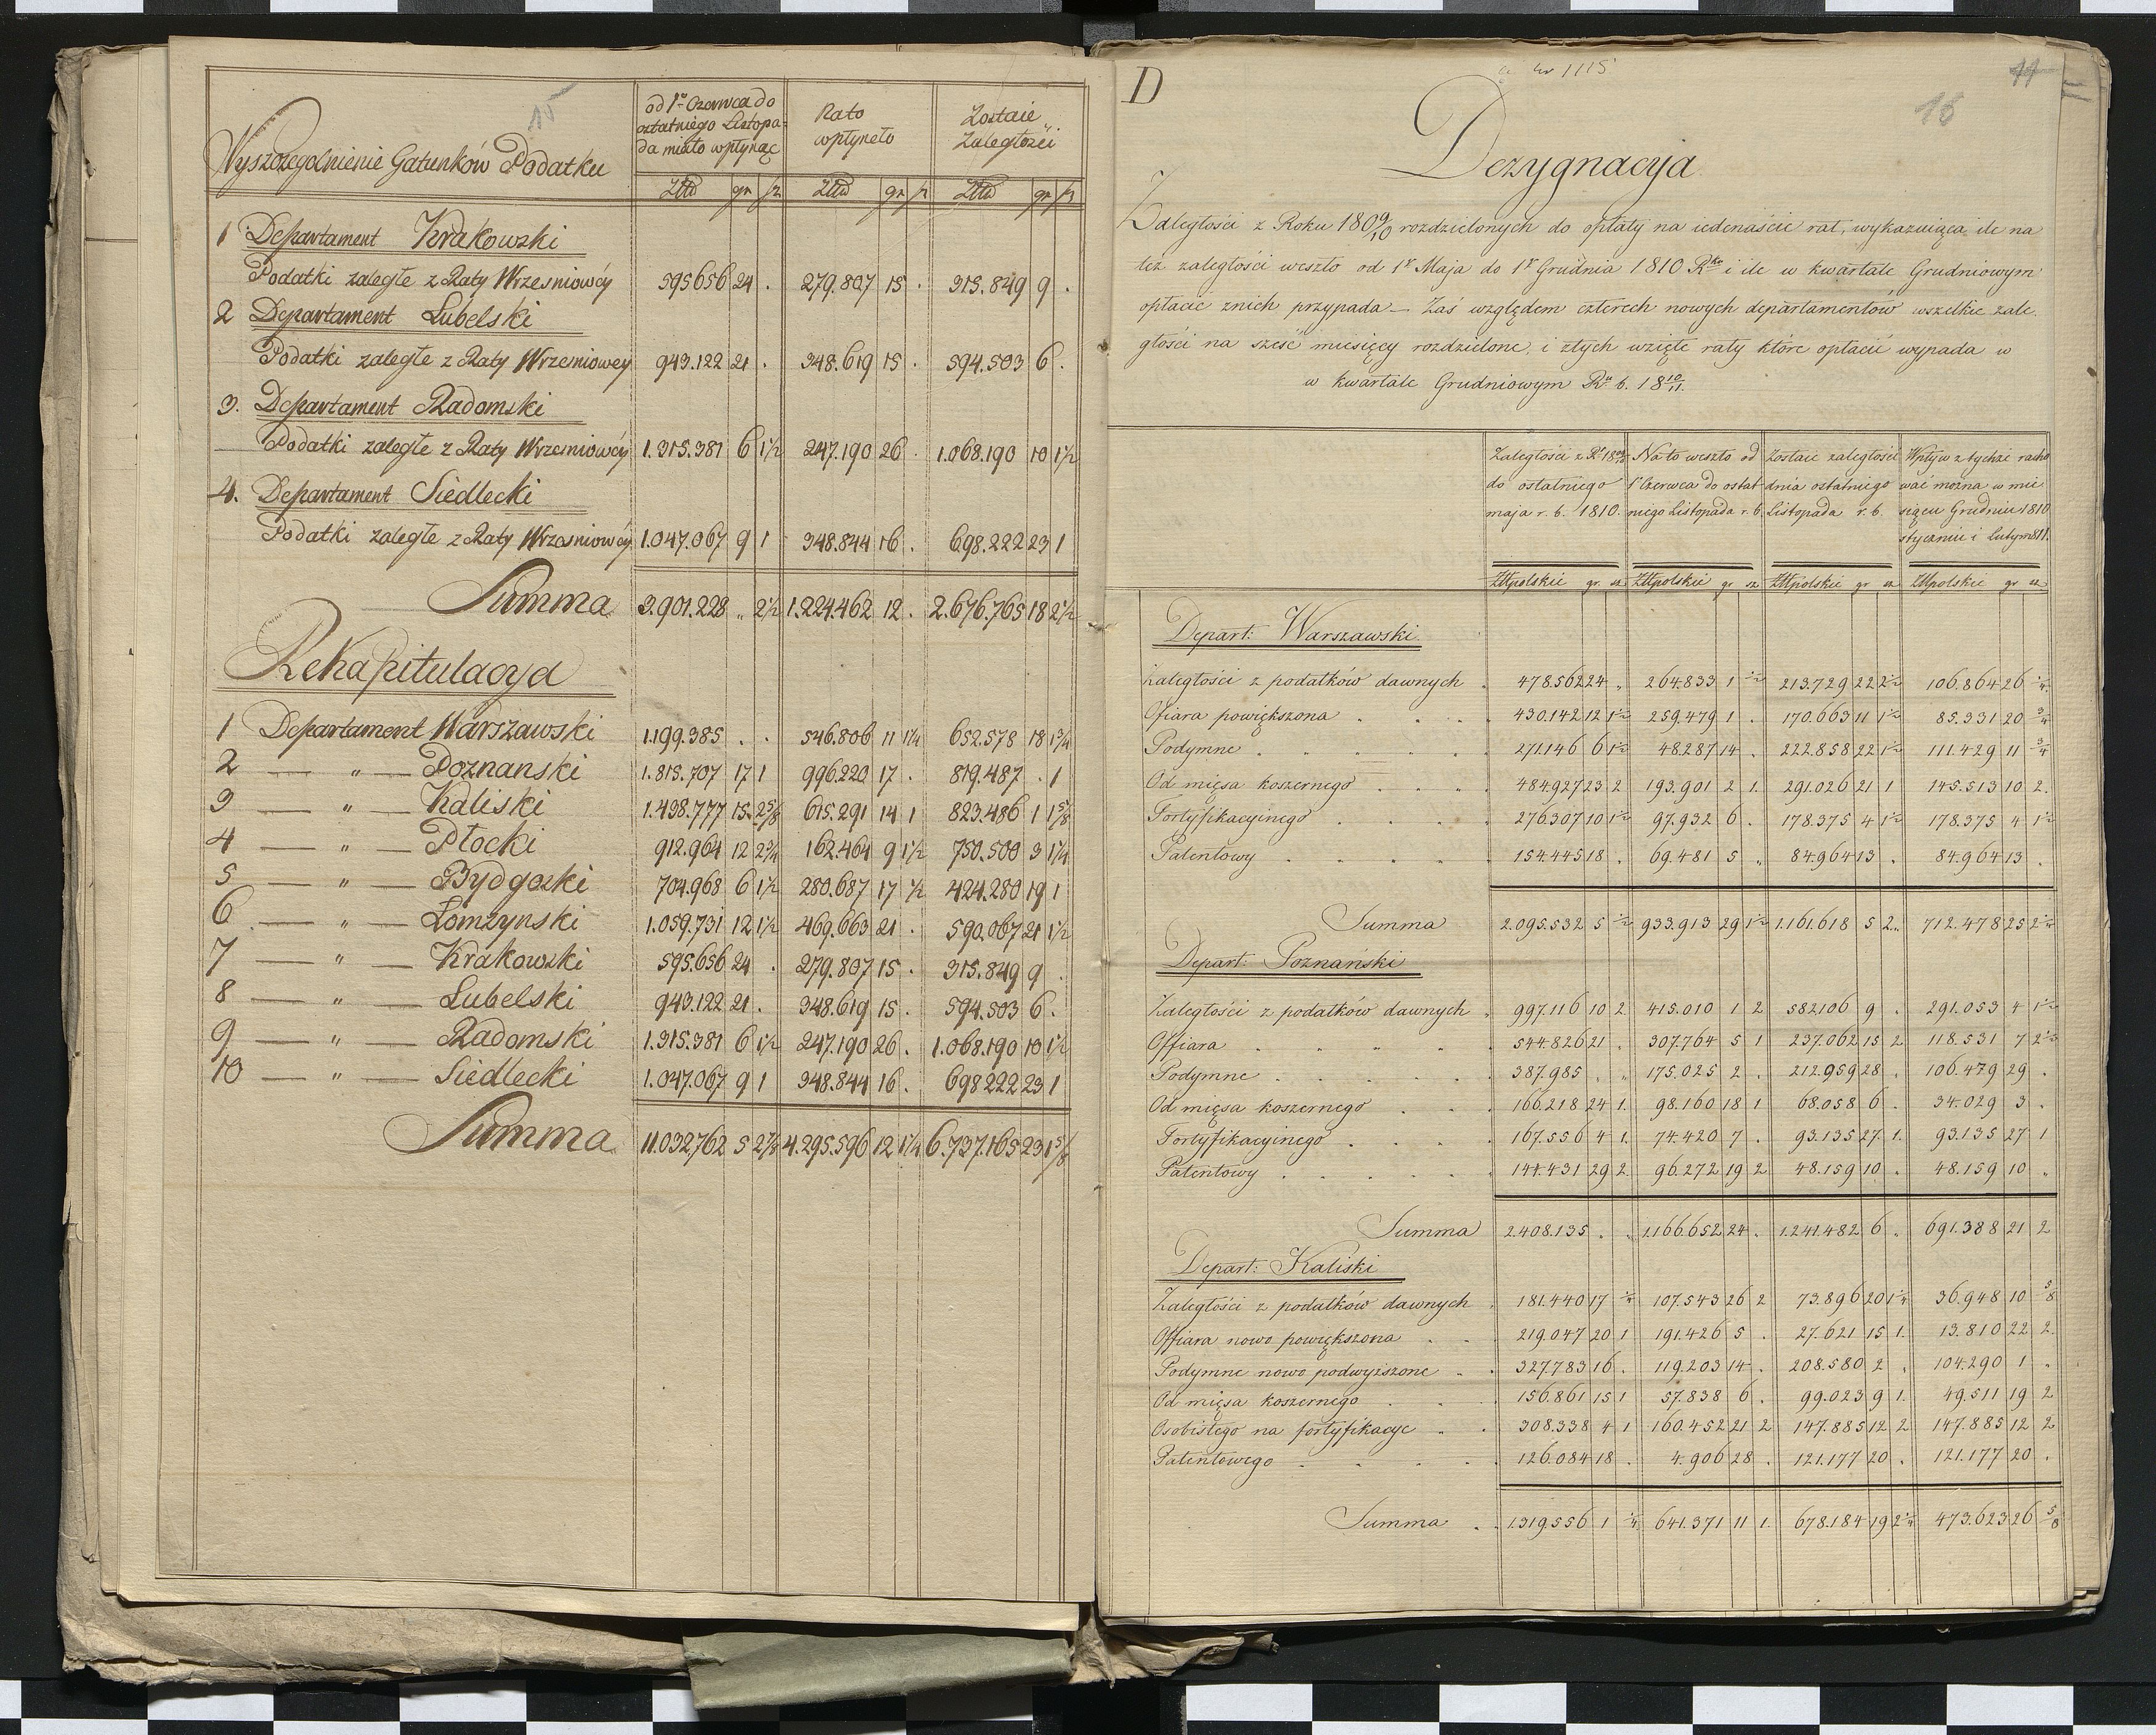 15
Wyszczegolnienie Gatunków Podatku
od 1o Czerwca do
ostatniego Listopa-
da miało wpłynąc
Na to
wpłyneło
Zostaie
Zaległości
Złtt gr sz Złtt gr sz Złtt gr sz
1 Departament Krakowski
Podatki zaległe z Raty Wrzesniowéy 595656 24 . 279.807 15 . 315.849 9 .
2 Departament Lubelski
Podatki zaległe z Raty Wrzesniowey 943.122 21 . 348.619 15 . 594.503 6 .
3. Departament Radomski
Podatki zaległe z Raty Wrzesniowéy 1.315.381 6 1½ 247.190 26 . 1.068.190 10 1½
4. Departament Siedlecki
Podatki zaległe z Raty Wrzesniowéy 1.047.067 9 1 348.844 16 . 698.222 23 1
Summa 3.901.228 „ 2½ 1.224.462 12 . 2.676.765 18 2½
Rekapitulacya
1 Departament Warszawski 1.199.385 . . 546.806 11 1¼ 652.578 18 1¾
2 — „ — Poznanski 1.815.707 17 1 996.220 17 . 819.487 . 1
3 — „ — Kaliski 1.438.777 15 2⅝ 615.291 14 1 823.486 1 1⅝
4 — „ — Płocki 912.964 12 2¾ 162.464 9 1½ 750.500 3 1¼
5 — „ — Bydgoski 704.968 6 1½ 280.687 17 ½ 424.280 19 1
6 — „ — Łomzynski 1.059.731 12 1½ 469.663 21 . 590.067 21 1½
7 — „ — Krakowski 595.656 24 . 279.807 15 . 315.849 9 .
8 — „ — Lubelski 943.122 21 . 348.619 15 . 594.503 6 .
9 — „ — Radomski 1.315.381 6 1½ 247.190 26 . 1.068.190 10 1½
10 — „ — Siedlecki 1.047.067 9 1 348.844 16 . 698222 23 1
Summa 11.032,762 5 2⅞ 4.295.596 12 1¼ 6.737.165 23 1⅝
D
1115
11
16
Dezygnacya
Zaległości z Roku 1809/10 rozdzielonych do opłaty na iedenaście rat, wykazuiąca ile na
też zaległości weszło od 1go Maja do 1go Grudnia 1810 Rku i ile w kwartale Grudniowym
opłacić znich przypada — Zaś względem czterech nowych departamentów wszelkie zale.
głości na sześć miesięcy rozdzielone, i ztych wzięte raty które opłacić wypada w
w kwartale Grudniowym Ru b. 1810/11.
Zaległości z Ru 1809/10
do ostatniego
maja r. b. 1810.
Na to weszło od
1o Czerwca do ostat
niego Listopada r. b.
Zostaie zaległości
dnia ostatniego
Listopada r. b.
Wpływ z tychże racho
wać można w mie
siącu Grudniu 1810
styczniu i Lutym 1811.
Złłpolskie gr. sz Złłpolskie gr sz Złłpolskie gr sz Złłpolskie gr sz
Depart: Warszawski.
Zaległości z podatków dawnych 478.562 24 „ 264.833 1 ½ 213.729 22 2½ 106.864 26 ¼
Ofiara powiększona 430.142 12 1½ 259.479 1 . 170.663 11 1½ 85.331 20 ¾
Podymne 271.146 6 1½ 48.287 14 . 222.858 22 1½ 111.429 11 ¾
Od mięsa koszernego 484.927 23 2 193.901 2 1. 291.026 21 1 145.513 10 2.
Fortyfikacyinego 276.307 10 1½ 97.932 6 . 178.375 4 1½ 178.375 4 1½
Patentowy 154.445 18 . 69.481 5 „ 84.964 13 . 84.964 13 .
Summa 2.095.532 5 ½ 933.913 29 1½ 1.161.618 5 2. 712.478 25 2¼
Depart: Poznański
Zaległości z podatków dawnych 997.116 10 2 415.010 1 2 582.106 9 . 291.053 4 1½
Offiara 544.826 21 . 307.764 5 1 237.062 15 2 118.531 7 2½
Podymne 387.985 . „ 175.025 2 . 212.959 28 . 106.479 29 .
Od mięsa koszernego 166.218 24 1. 98.160 18 1 68.058 6 . 34.029 3 .
Fortyfikacyinego 167.556 4 1. 74.420 7 . 93.135 27 1. 93.135 27 1
Patentowy 144.431 29 2. 96.272 19 2 48.159 10 . 48.159 10 „
Summa 2.408.135 . „ 1.166.652 24 . 1.241.482 6 „ 691.388 21 2
Depart: Kaliski
Zaległości z podatków dawnych 181.440 17 ¼ 107.543 26 2 73.896 20 1¼ 36.948 10 ⅝
Offiara nowo powiększona 219.047 20 1 191.426 5 . 27.621 15 1. 13.810 22 2.
Podymne nowo podwyższone 327.783 16 . 119.203 14 . 208.580 2 . 104.290 1 „
Od mięsa koszernego 156.861 15 1 57.838 6 . 99.023 9 1. 49.511 19 2
Osobistego na fortyfikacye 308.338 4 1 160.452 21 2 147.885 12 2 147.885 12 2
Patentowego 126.084 18 . 4.906 28 . 121.177 20 . 121.177 20 .
Summa 1.319.556 1 ¼ 641.371 11 1. 678.184 19 2¼ 473.623 26 ⅝